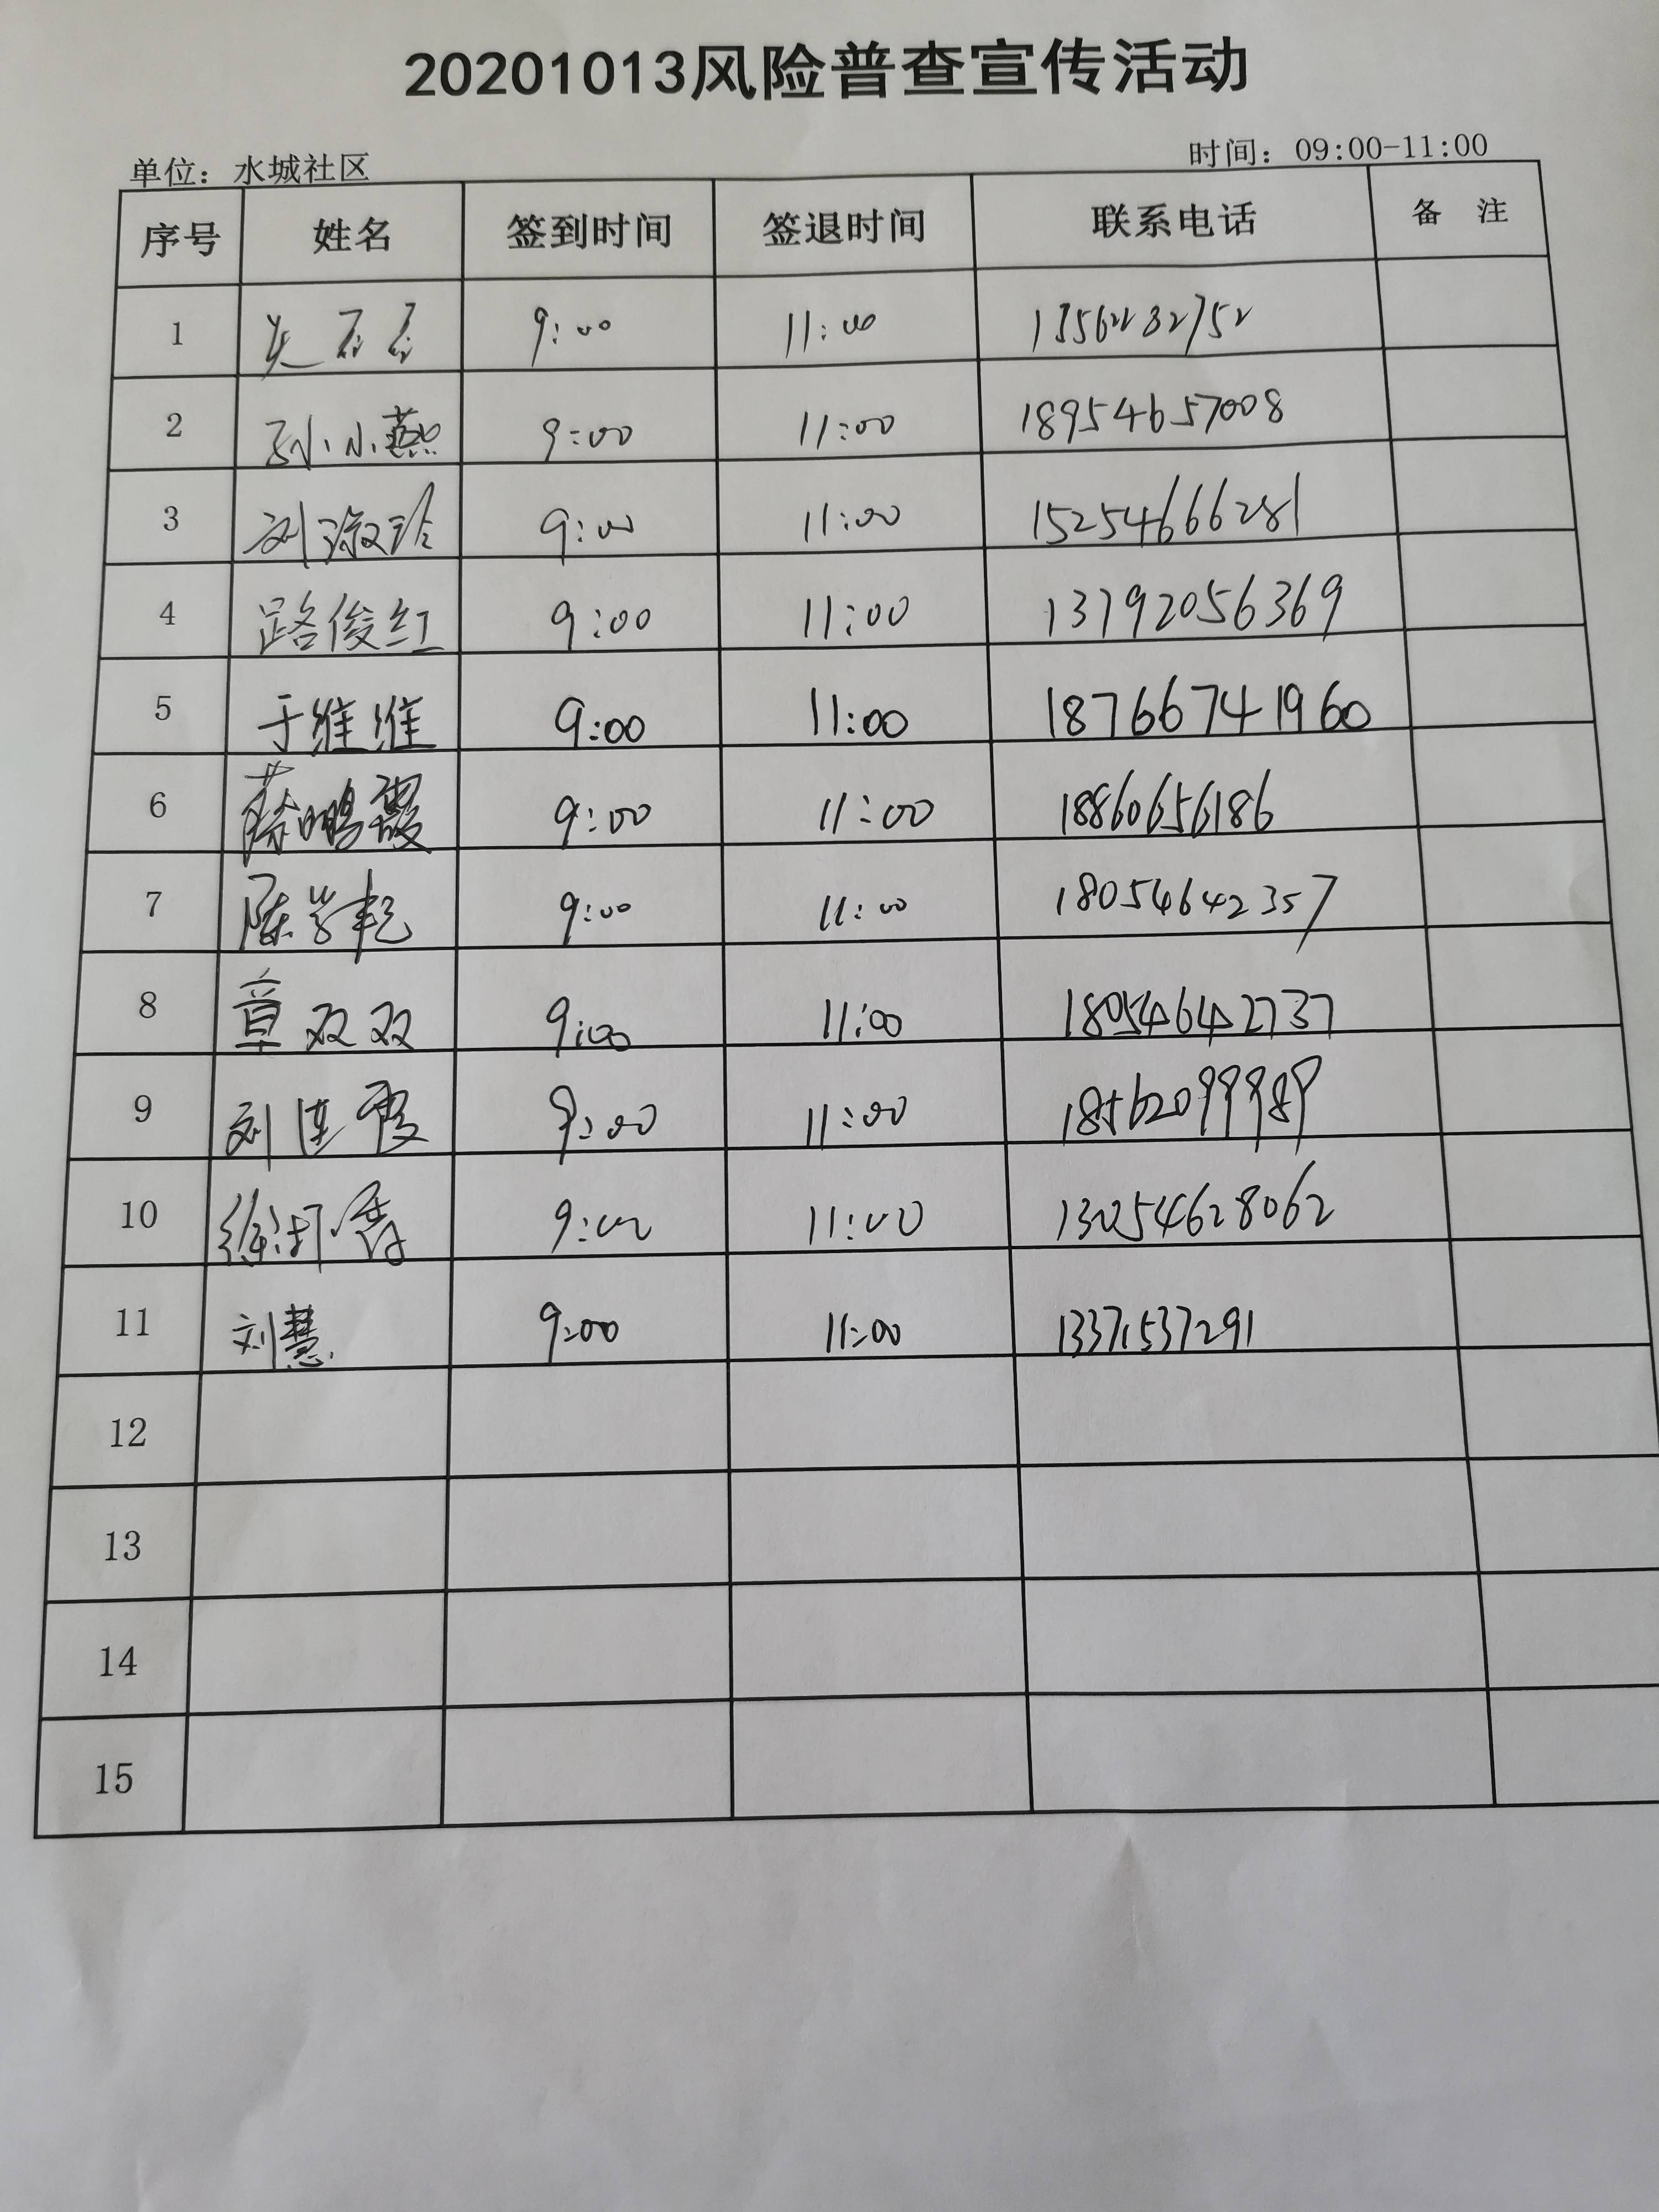 20201013风险普查宣传活动
单位：水城社区 时间：09:00-11:00
序号 姓名 签到时间 签退时间 联系电话 备 注
1 9:00 11:00
2 孙小燕 9:00 11:00 18954657008
3 刘淑玲 9:00 11:00 15254666281
4 路俊红 9:00 11:00 13792056369
5 于维维 9:00 11:00 18766741960
6 蔡鹏霞 9:00 11:00 18860656186
7 9:00 11:00 18054642357
8 章双双 9:00 11:00 18054642737
9 刘连霞 9:00 11:00 18562099989
10 9:00 11:00
11 刘慧 9:00 11:00 13371537291
12
13
14
15